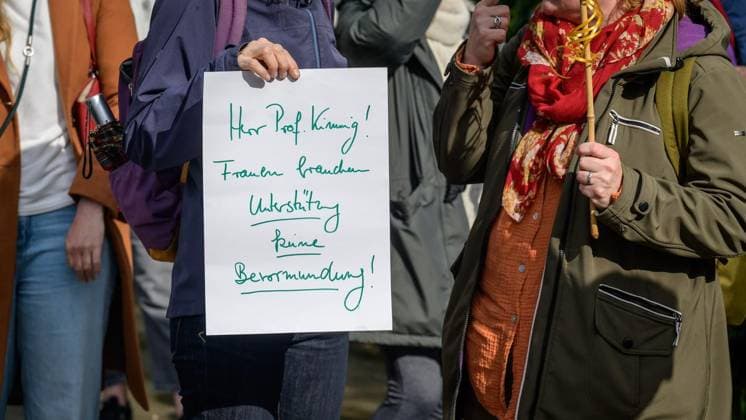 Herr Prof. Kimmig!
Frauen brauchen
Unterstützung
keine
Bevormundung!